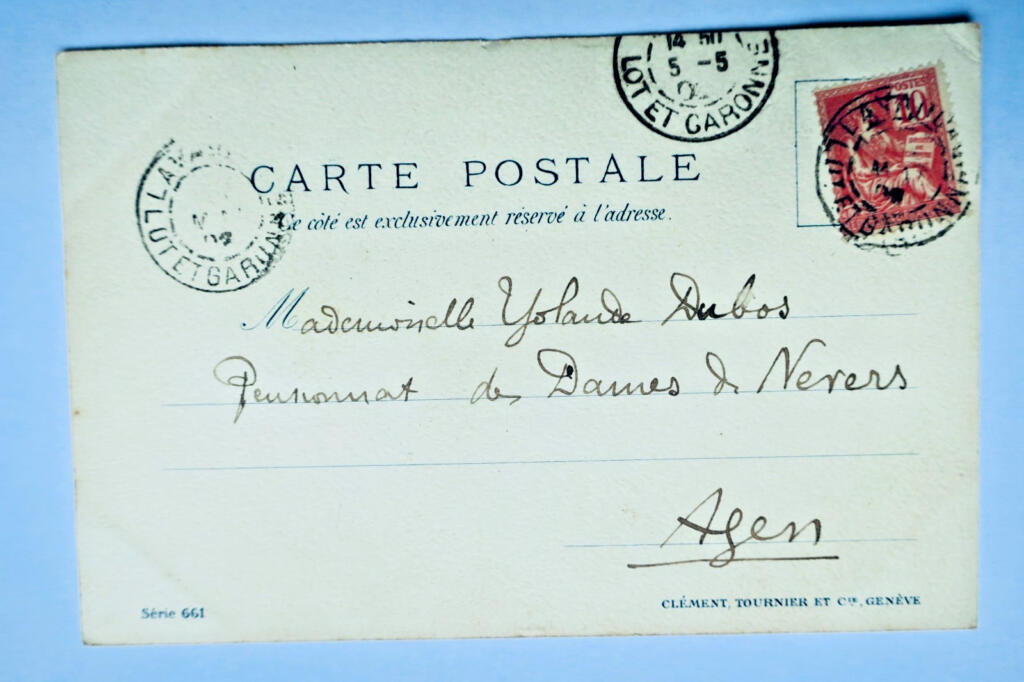 14 50
5 -5
LOT ET GARONNE
POSTES
10
CARTE POSTALE
Ce côté est exclusivement réservé à l'adresse.
LOT ET GARONNE
Mademoiselle Yolande Dubos
Pensionnat des Dames de Nevers
Agen
Série 661
CLÉMENT, TOURNIER ET Cie, GENÈVE